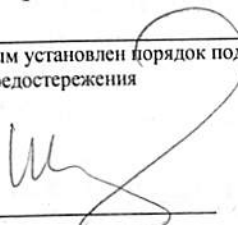 ым установлен порядок под
едостережения